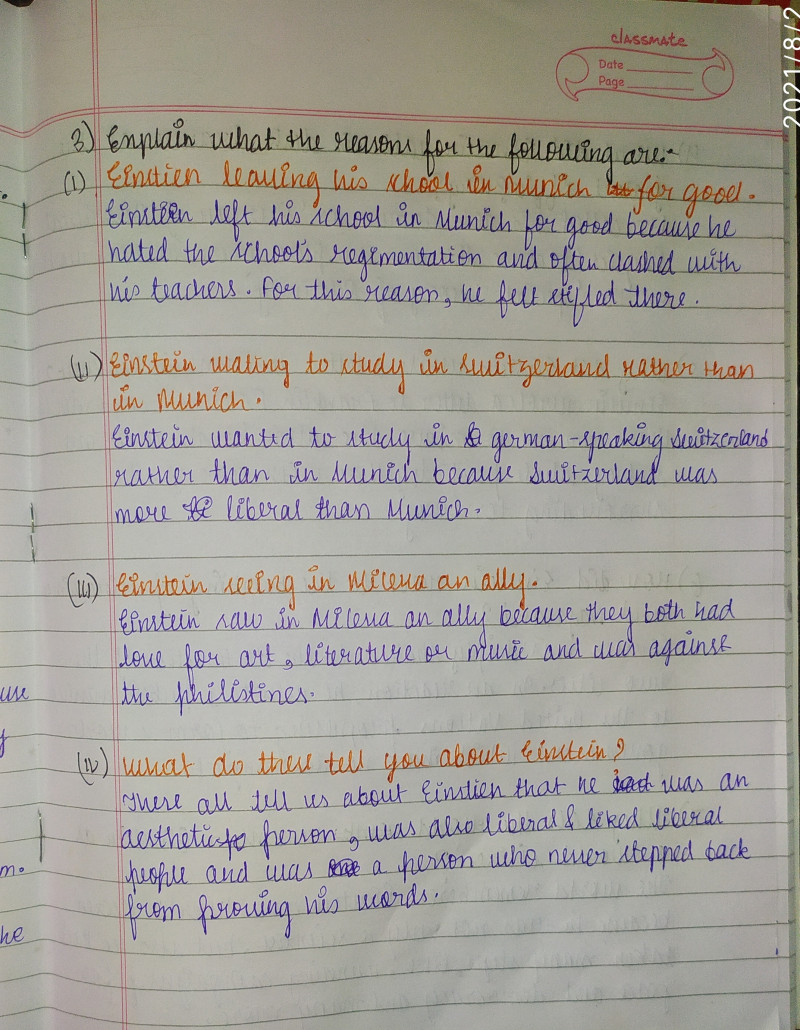 classmate
Date
Page
2021/8/2
3) Explain what the reasons for the following are:-
(i) Einstien leaving his school in Munich for good.
Einstein left his school in Munich for good because he
hated the school's regimentation and often clashed with
his teachers. For this reason, he felt stifled there.
(ii) Einstein wating to study in Switzerland rather than
in Munich.
Einstein wanted to study in german-speaking Switzerland
rather than in Munich because Switzerland was
more liberal than Munich.
(iii) Einstein seeing in Mileva an ally.
Einstein saw in Mileva an ally because they both had
love for art, literature or music and was against
the philistines.
(iv) What do these tell you about Einstein?
These all tell us about Einstien that he was an
aesthetic person, was also liberal & liked liberal
people and was a person who never stepped back
from proving his words.
use
y
m.
he